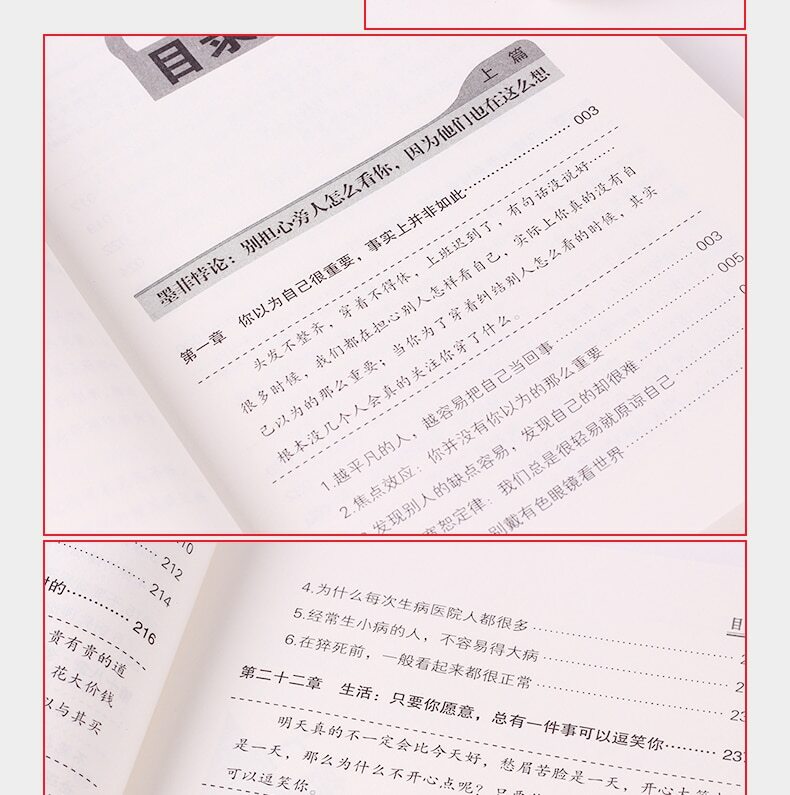 目录
上 篇
墨菲悖论：别担心旁人怎么看你，因为他们也在这么想
第一章 你以为自己很重要，事实上并非如此 003
头发不整齐，穿着不得体，上班迟到了，有句话没说好……
很多时候，我们都在担心别人怎样看自己，实际上你真的没有自
己以为的那么重要；当你为了穿着纠结别人怎么看的时候，其实
根本没几个人会真的关注你穿了什么。
1.越平凡的人，越容易把自己当回事 003
2.焦点效应：你并没有你以为的那么重要 005
发现别人的缺点容易，发现自己的却很难
恕定律：我们总是很轻易就原谅自己
别戴有色眼镜看世界
10
212
214
时的 216
贵有贵的道
花大价钱
以与其买
目
4.为什么每次生病医院人都很多
5.经常生小病的人，不容易得大病
6.在猝死前，一般看起来都很正常
第二十二章 生活：只要你愿意，总有一件事可以逗笑你 237
明天真的不一定会比今天好，愁眉苦脸是一天，开心大笑
是一天，那么为什么不开心点呢？只要
可以逗笑你。